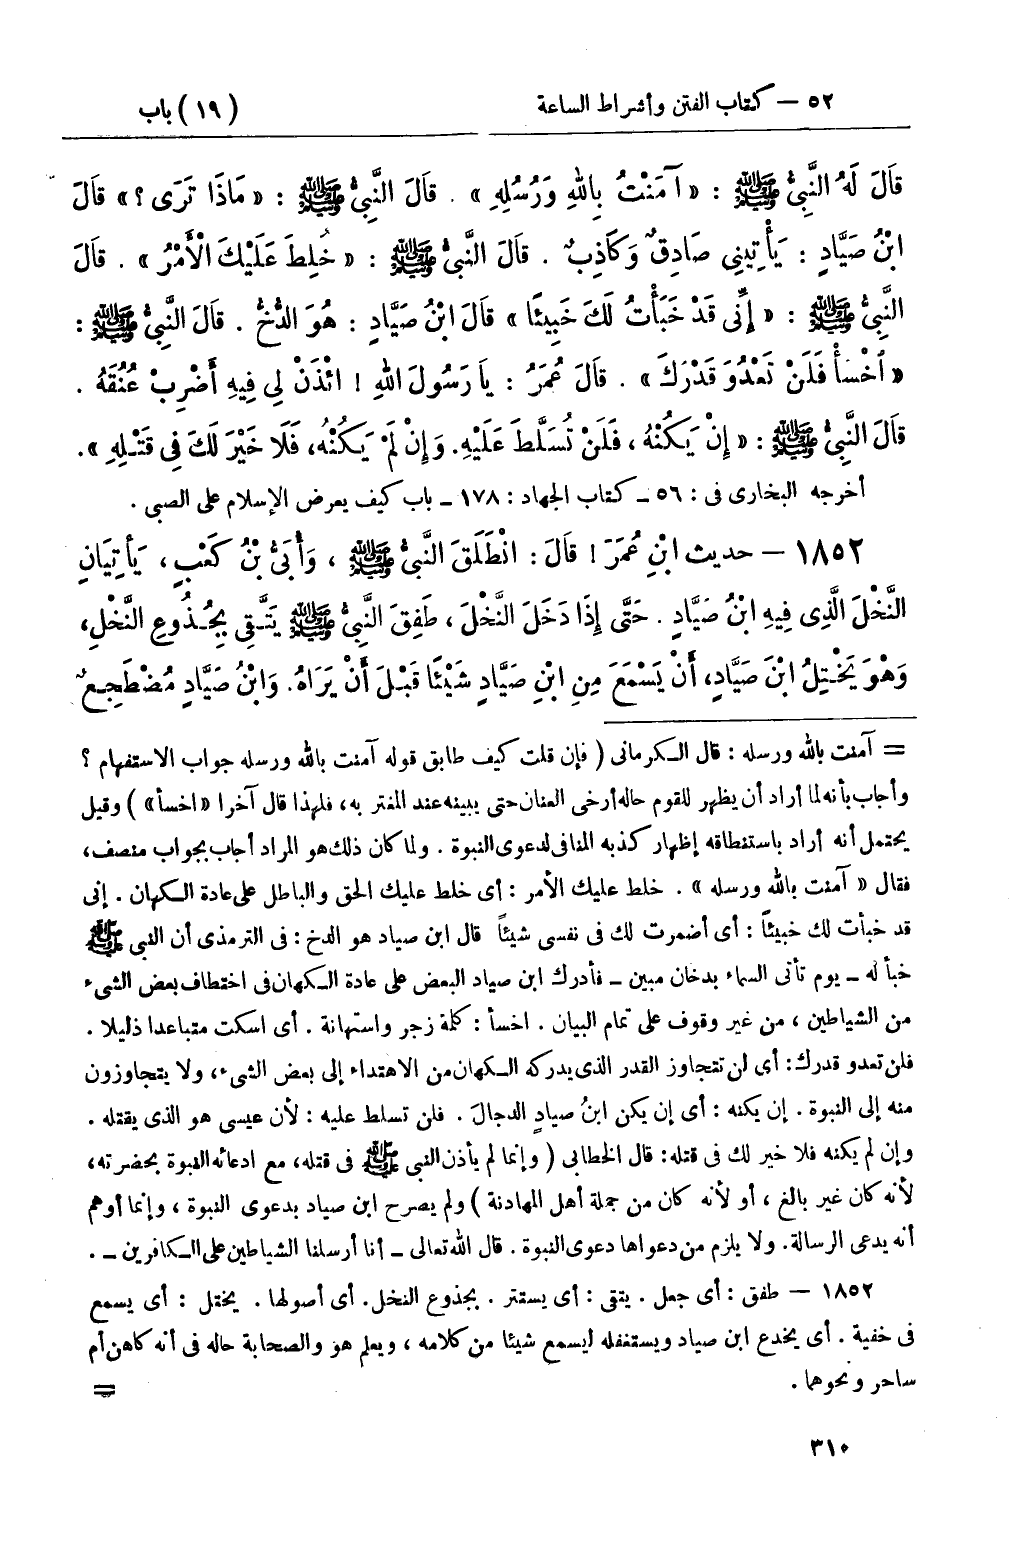 ٥٢ – كتاب الفتن وأشراط الساعة
(١٩) باب
قَالَ لَهُ النَّبِيُّ ﷺ : « آمَنْتُ بِاللهِ وَرُسُلِهِ » . قَالَ النَّبِيُّ ﷺ : « مَاذَا تَرَى ؟ » قَالَ
ابْنُ صَيَّادٍ : يَأْتِينِي صَادِقٌ وَكَاذِبٌ . قَالَ النَّبِيُّ ﷺ : « خُلِطَ عَلَيْكَ الْأَمْرُ » . قَالَ
النَّبِيُّ ﷺ : « إِنِّى قَدْ خَبَأْتُ لَكَ خَبِيئًا » قَالَ ابْنُ صَيَّادٍ : هُوَ الدُّخُّ . قَالَ النَّبِيُّ ﷺ :
« اخْسَأْ فَلَنْ تَعْدُوَ قَدْرَكَ » . قَالَ عُمَرُ : يَا رَسُولَ اللهِ ! ائْذَنْ لِى فِيهِ أَضْرِبْ عُنُقَهُ .
قَالَ النَّبِيُّ ﷺ : « إِنْ يَكُنْهُ ، فَلَنْ تُسَلَّطَ عَلَيْهِ. وَإِنْ لَمْ يَكُنْهُ، فَلَا خَيْرَ لَكَ فِى قَتْلِهِ ».
أخرجه البخارى فى : ٥٦ – كتاب الجهاد : ١٧٨ – باب كيف يعرض الإسلام على الصبى .
١٨٥٢ – حديث ابْنِ عُمَرَ ! قَالَ : انْطَلَقَ النَّبِيُّ ﷺ ، وَأُبَىُّ بْنُ كَعْبٍ ، يَأْتِيَانِ
النَّخْلَ الَّذِى فِيهِ ابْنُ صَيَّادٍ . حَتَّى إِذَا دَخَلَ النَّخْلَ ، طَفِقَ النَّبِيُّ ﷺ يَتَّقِى بِجُذُوعِ النَّخْلِ،
وَهْوَ يَخْتِلُ ابْنَ صَيَّادٍ، أَنْ يَسْمَعَ مِنِ ابْنِ صَيَّادٍ شَيْئًا قَبْلَ أَنْ يَرَاهُ. وَابْنُ صَيَّادٍ مُضْطَجِعٌ
= آمنت بالله ورسله : قال الكرمانى ( فإن قلت كيف طابق قوله آمنت بالله ورسله جواب الاستفهام ؟
وأجاب بأنه لما أراد أن يظهر للقوم حاله أرخى العنان حتى يبينه عند المغتر به، فلهذا قال آخرا «اخسأ» ) وقيل
يحتمل أنه أراد باستنطاقه إظهار كذبه المنافى لدعوى النبوة . ولما كان ذلك هو المراد أجاب بجواب منصف،
فقال « آمنت بالله ورسله » . خلط عليك الأمر : أى خلط عليك الحق والباطل على عادة الكهان . إنى
قد خبأت لك خبيئاً : أى أضمرت لك فى نفسى شيئاً قال ابن صياد هو الدخ : فى الترمذى أن النبى ﷺ
خبأ له – يوم تأتى السماء بدخان مبين – فأدرك ابن صياد البعض على عادة الكهان فى اختطاف بعض الشىء
من الشياطين ، من غير وقوف على تمام البيان . اخسأ : كلمة زجر واستهانة . أى اسكت متباعدا ذليلا .
فلن تعدو قدرك: أى لن تتجاوز القدر الذى يدركه الكهان من الاهتداء إلى بعض الشىء، ولا يتجاوزون
منه إلى النبوة . إن يكنه : أى إن يكن ابنُ صيادٍ الدجالَ . فلن تسلط عليه : لأن عيسى هو الذى يقتله .
وإن لم يكنه فلا خير لك فى قتله: قال الخطابى ( وإنما لم يأذن النبى ﷺ فى قتله، مع ادعائه النبوة بحضرته،
لأنه كان غير بالغ ، أو لأنه كان من جملة أهل المهادنة ) ولم يصرح ابن صياد بدعوى النبوة ، وإنما أوهم
أنه يدعى الرسالة. ولا يلزم من دعواها دعوى النبوة . قال الله تعالى – أنا أرسلنا الشياطين على الكافرين – .
١٨٥٢ – طفق : أى جعل . يتقى : أى يستتر . بجذوع النخل. أى أصولها . يختل : أى يسمع
فى خفية . أى يخدع ابن صياد ويستغفله ليسمع شيئا من كلامه ، ويعلم هو والصحابة حاله فى أنه كاهن أم
ساحر ونحوهما .
=
٣١٠